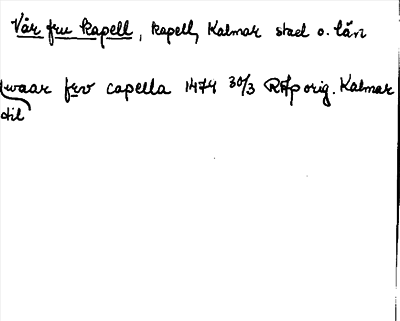 Vår fru kapell, kapell, Kalmar stad o. län
waar frv capella 1474 30/3 RAp orig. Kalmar
til